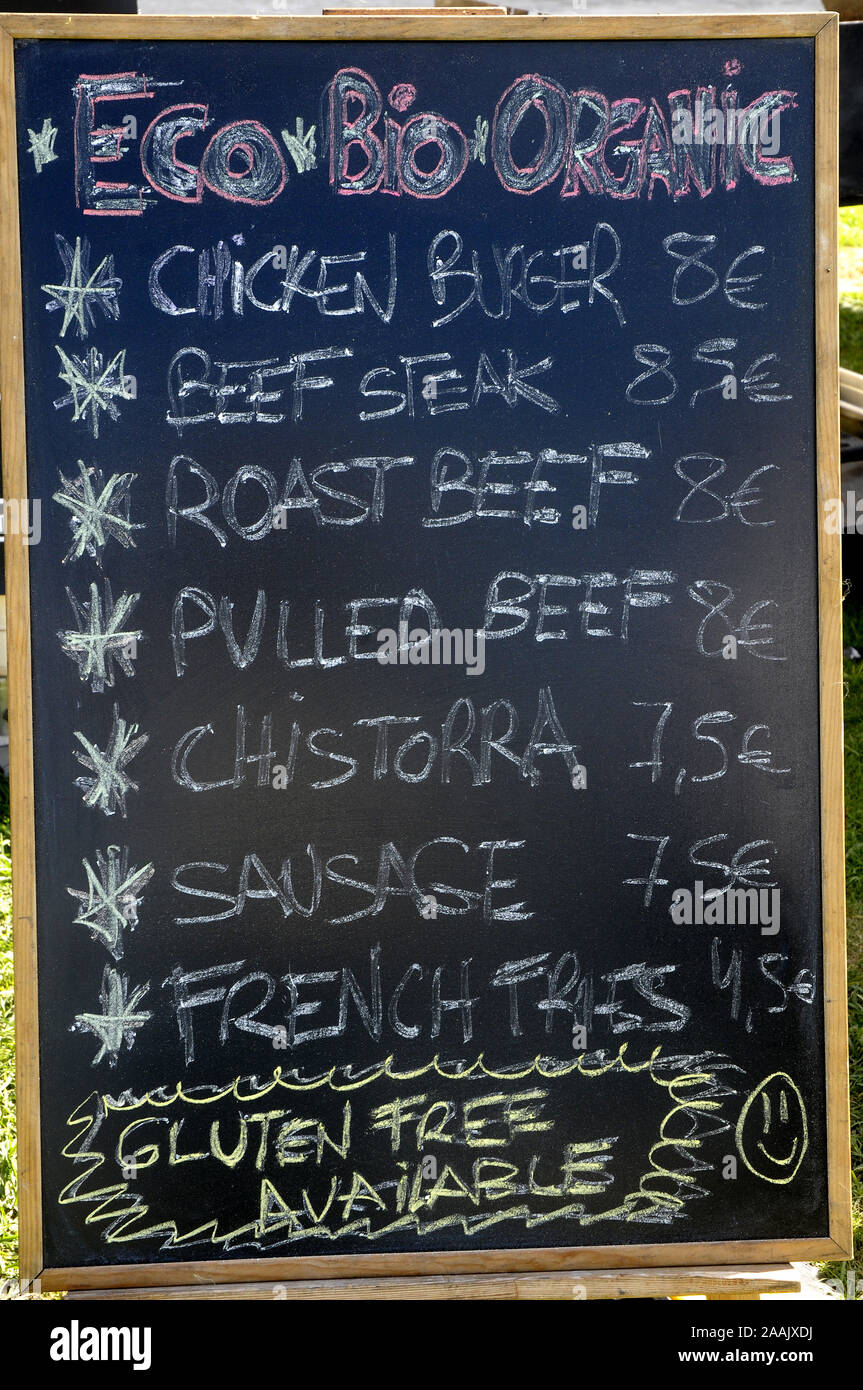 Eco Bio Organic
CHICKEN BURGER 8€
BEEF STEAK 8,5€
ROAST BEEF 8€
PULLED BEEF 8€
CHISTORRA 7,5€
SAUSAGE 7,5€
FRENCH FRIES 4,5€
GLUTEN FREE
AVAILABLE
alamy
Image ID: 2AAJXDJ
www.alamy.com